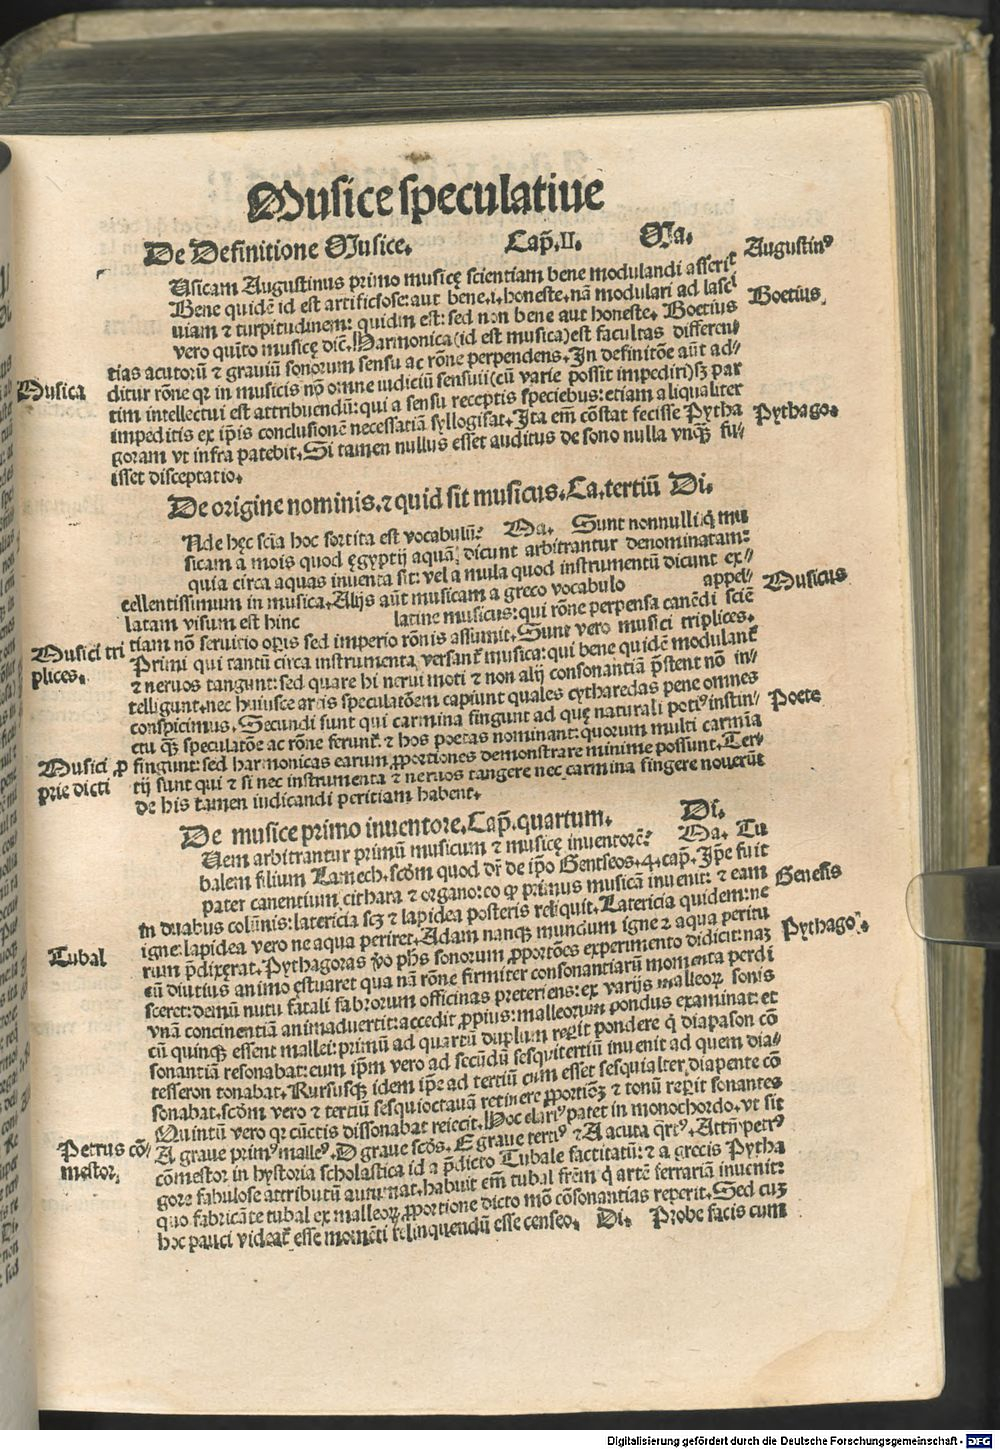 Musice speculatiue
De Definitione Musice. Cap̄.II. Ma.
Augustin⁹
Usicam Augustinus primo musicę scientiam bene modulandi asserit
Bene quidē id est artificiose: aut bene.i.honeste.nā modulari ad lasci
Boetius.
uiam ⁊ turpitudinem: quidm est: sed non bene aut honeste. Boetius
vero quīto musicę dic̄t. Harmonica(id est musica)est facultas differen
tias acutorū ⁊ grauiū sonorum sensu ac rōne perpendens. In definitōe aūt ad⸗
Musica
ditur rōne qr in musicis nō omne iudiciū sensuii(cū varie possit impediri)sʒ par
tim intellectui est attribuendū: qui a sensu receptis speciebus: etiam aliqualiter
impeditis ex ip̄is conclusionē necessatiā syllogisat. Ita em̄ cōstat fecisse Pytha
Pythago.
goram vt infra patebit. Si tamen nullus esset auditus de sono nulla vnq̄ʒ fu⸗
isset disceptatio.
De origine nominis.⁊ quid sit musicus. Ca. tertiū Di.
Nde hęc scīa hoc sortita est vocabulū? Ma. Sunt nonnulli q̄ mu
sicam a mois quod ęgyptij aquā dicunt arbitrantur denominatam:
quia circa aquas inuenta sit: vel a mula quod instrumentū dicunt ex⸗
cellentissimum in musica. Alijs aūt musicam a greco vocabulo appel⸗
Musicus
latam visum est hinc latine musicus: qui rōne perpensa canēdi sciē
tiam nō seruitio op̄is sed imperio rōnis assumit. Sunt vero musici triplices.
Musici tri
plices.
Primi qui tantū circa instrumenta versant̄ musica: qui bene quidē modulant̄
⁊ neruos tangunt: sed quare hi nerui moti ⁊ non alij consonantiā p̄stent nō in⸗
telligunt. nec huiusce artis speculatōem capiunt quales cytharedas pene omnes
conspicimus. Secundi sunt qui carmina fingunt ad quę naturali poti⁹ instin⸗
Poete
ctu q̄ʒ speculatōe ac rōne ferunt̄. ⁊ hos poetas nominant: quorum multi carmīa
fingunt: sed harmonicas earum ꝓportiones demonstrare minime possunt. Ter⸗
Musici ꝓ
prie dicti
tij sunt qui ⁊ si nec instrumenta ⁊ neruos tangere nec carmina fingere nouerūt
de his tamen iudicandi peritiam habent.
De musice primo inuentore. Cap̄. quartum. Di.
Uem arbitrantur primū musicum ⁊ musicę inuentorē? Ma. Tu
balem filium Lamech. scd̄m quod dr̄ de ip̄o Genēseos.4.cap̄. Ip̄e fuit
pater canentium cithara ⁊ organo: eo ꝙ primus musicā inuenit: ⁊ eam
Genesis
in duabus colūnis: latericia scʒ ⁊ lapidea posteris reliquit. Latericia quidem: ne
igne: lapidea vero ne aqua periret. Adam nanqʒ mundum igne ⁊ aqua peritu
Pythago.
Tubal
rum p̄dixerat. Pythagoras v̄o ph̄s sonorum ꝓportōes experimento didicit: naʒ
cū diutius animo ęstuaret qua nā rōne firmiter consonantiarū momenta perdi
sceret: demū nutu fatali fabrorum officinas preteriens: ex varijs malleoꝝ sonis
vnā concinentiā animaduertit: accedit ꝓpius: malleorum pondus examinat: et
cū quinqʒ essent mallei: primū ad quartū duplum reꝑit pondere q̄ diapason cō
sonantiā resonabat: cum ip̄m vero ad secūdū sesquitertiū inuenit ad quem dia⸗
tesseron tonabat. Rursusqʒ idem ip̄e ad tertiū cum esset sesquialter diapente cō
sonabat. scd̄m vero ⁊ tertiū sesquioctauā retinere ꝓportiōeʒ ⁊ tonū reꝑit sonantes
Quintū vero qr cūctis dissonabat reiecit. Hoc clari⁹ patet in monochordo. vt sit
A graue prim⁹ malle⁹. D graue scd̄s. E graue terti⁹ ⁊ A acuta q̄rt⁹. Attn̄ petr⁹
Petrus cō⸗
mestor.
cōmestor in hystoria scholastica id a p̄dicto Tubale factitatū: ⁊ a grecis Pytha
gore fabulose attributū autumat. habuit em̄ tubal frēm q̄ artē ferrariā inuenit:
quo fabricāte tubal ex malleoꝝ ꝓportione dicto mō cōsonantias reperit. Sed cuʒ
hoc pauci videat̄ esse momēti relinquendū esse censeo. Di. Probe facis cum
Digitalisierung gefördert durch die Deutsche Forschungsgemeinschaft - DFG